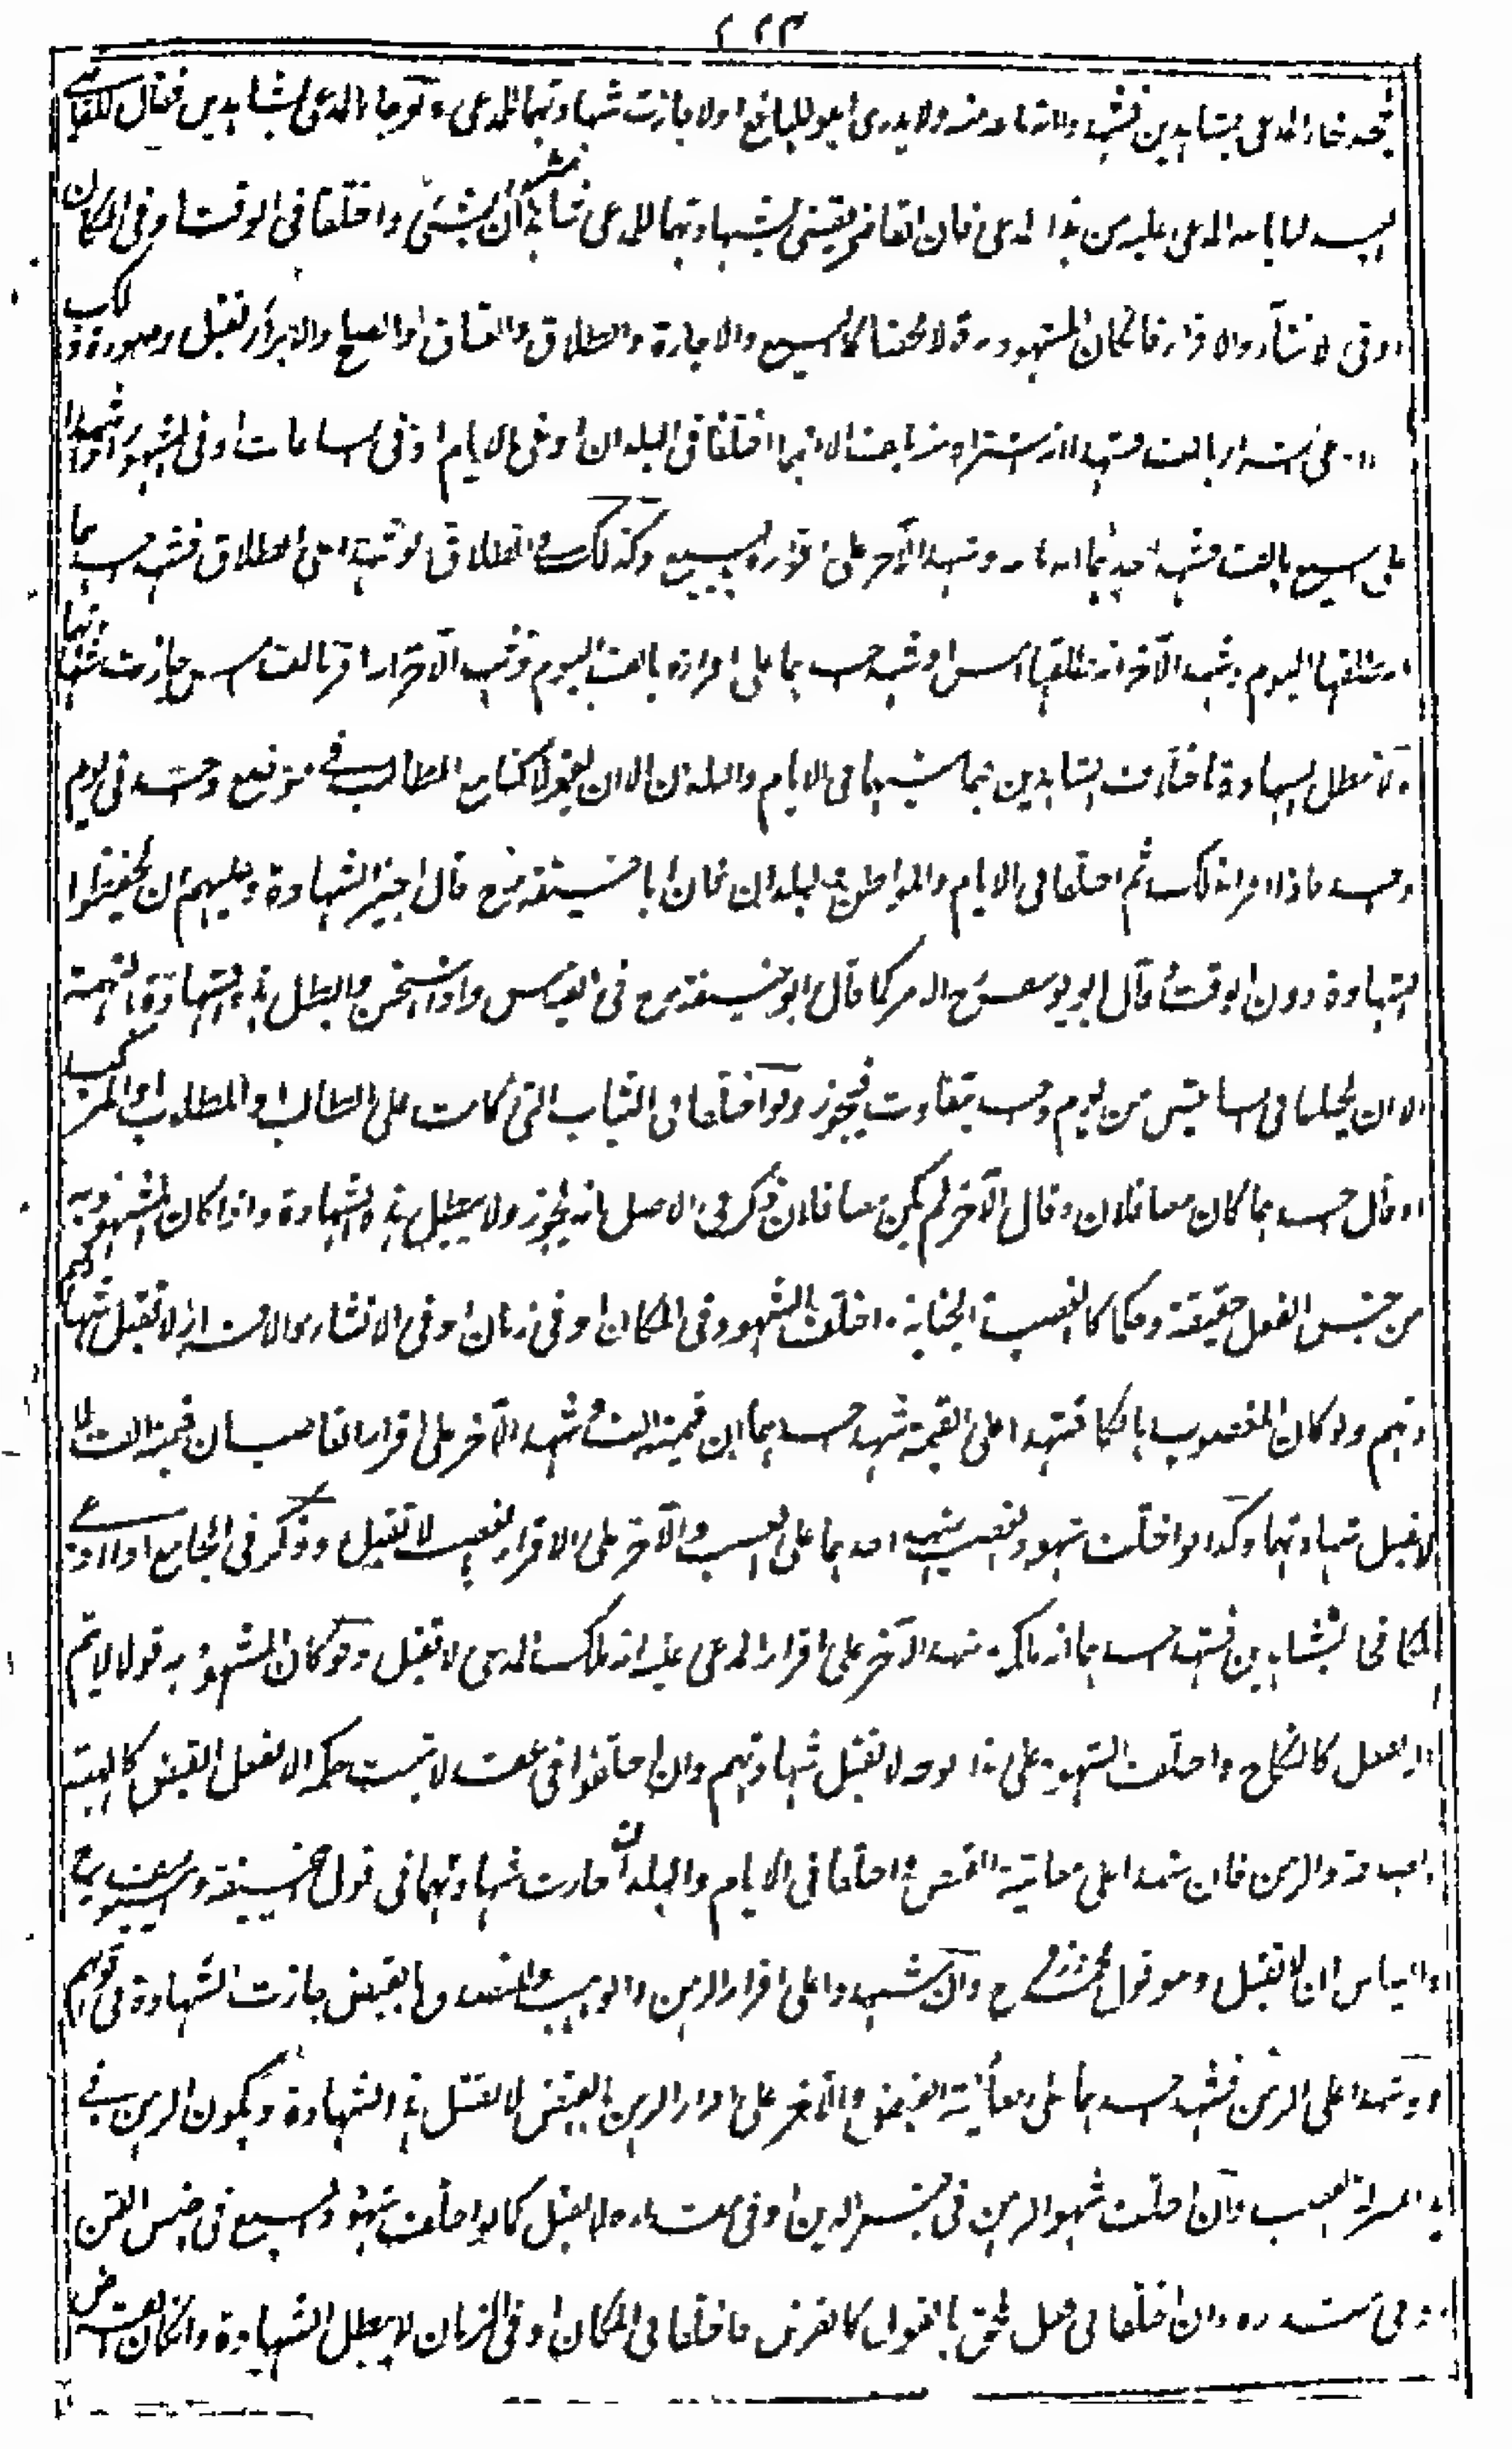 ٢٢٣
فجحد فجاء المدعى بشاهدين فشهدا ولا يدرى اهو للبائع اولا جازت شهادتهما للمدعى ولو جاء المدعى بشاهدين فقال للقاضى
المدعى عليه من هذا المدعى فان القاضى يقضى بشهادتهما للمدعى شاهدان شهدا بشئ واختلفا فى الوقت او فى المكان
او فى الانشاء والاقرار فان كان المشهود به قولا محضا كالبيع والاجارة والطلاق والعتاق والصلح والابراء تقبل وصورة ذلك
بالف فشهدا انه اشتراه منه بالف الا انهما اختلفا فى البلدان او فى الايام او فى الساعات او فى الشهور او شهدا
على البيع بالف فشهد احدهما انه باعه وشهد الآخر على اقراره بالبيع وكذلك فى الطلاق لو شهدا على الطلاق فشهد احدهما
انه طلقها اليوم وشهد الآخر انه طلقها امس او شهد احدهما على اقراره بالف اليوم وشهد الآخر انه اقر بالف امس جازت شهادتهما
ولا تبطل الشهادة باختلاف الشاهدين فيما بينهما فى الايام والبلدان الا ان يقولا كنا مع الطالب فى موضع واحد فى يوم
واحد فاذا اقرا بذلك ثم اختلفا فى الايام والمواطن والبلدان فان ابا حنيفة رح قال اجيز الشهادة وعليهم ان يحفظوا
الشهادة دون الوقت وقال ابو يوسف رح الامر كما قال ابو حنيفة رح فى القياس وانا استحسن وابطل هذه الشهادة بالتهمة
الا ان يختلفا فى الساعتين من يوم واحد يتفاوت فيجوز ولو اختلفا فى الثياب التى كانت على الطالب او المطلوب او المركب
او قال احدهما كان معنا فلان وقال الآخر لم يكن معنا فلان ذكر فى الاصل انه يجوز ولا يبطل هذه الشهادة واذا كان المشهود به
من جنس الفعل حقيقة وحكما كالغصب والجناية واختلف الشهود فى المكان او فى الزمان او فى الانشاء والاقرار لا تقبل شهادتهم
ولو كان المغصوب هالكا فشهدا على القيمة شهد احدهما ان قيمته الف وشهد الآخر على اقرار الغاصب ان قيمته الف لا
تقبل شهادتهما وكذا لو اختلف شهود الغصب شهد احدهما على الغصب والآخر على الاقرار بالغصب لا تقبل وذكر فى الجامع اذا ادعى
ملكا فى الشاهدين فشهد احدهما انه ملكه وشهد الآخر على اقرار المدعى عليه انه ملك المدعى لا تقبل ولو كان المشهود به قولا لا يتم
الا بالفعل كالنكاح واختلف الشهود على هذا الوجه لا تقبل شهادتهم وان اختلفوا فى عقد لا يثبت حكمه الا بفعل القبض كالهبة
والصدقة والرهن فان شهدا على معاينة القبض واختلفا فى الايام والبلدان جازت شهادتهما فى قول ابى حنيفة وابى يوسف رح
والقياس ان لا تقبل وهو قول محمد وزفر رح وان شهدوا على اقرار الراهن والواهب والمتصدق بالقبض جازت الشهادة فى قولهم
ولو شهدا على الرهن فشهد احدهما على معاينة القبض والآخر على اقرار الراهن بالقبض لا تقبل هذه الشهادة ويكون الرهن فى
هذا بمنزلة الغصب وان اختلف شهود الرهن فى جنس الدين او فى مقداره لا يقبل كما لو اختلف شهود البيع فى جنس الثمن
او فى مقداره وان اختلفا فى فعل ملحق بالقول كالقرض فاختلفا فى المكان او فى الزمان لا يبطل الشهادة وان كان القرض